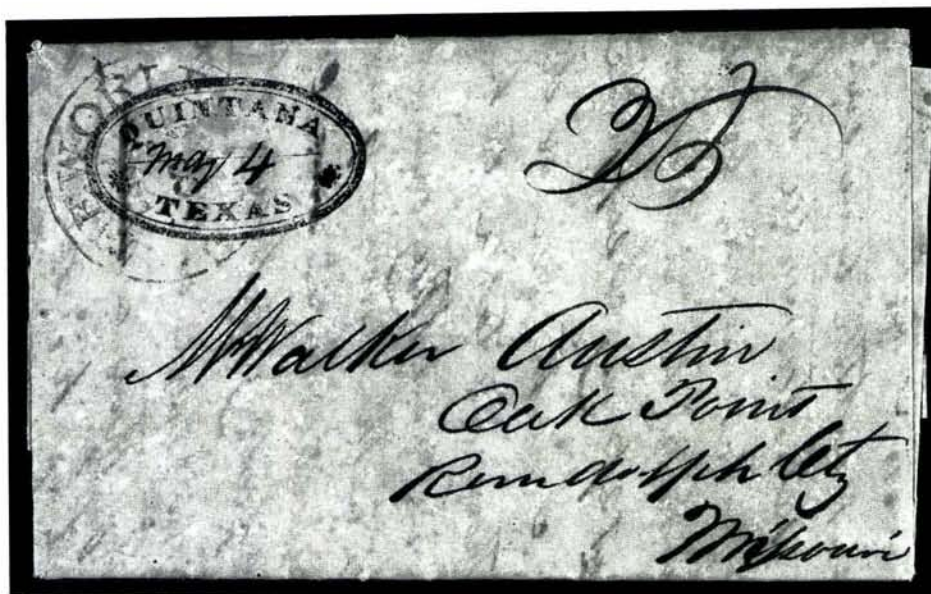 QUINTANA
May 4
TEXAS
Mr Walker Austin
Oak Point
Randolph Cty
Missouri